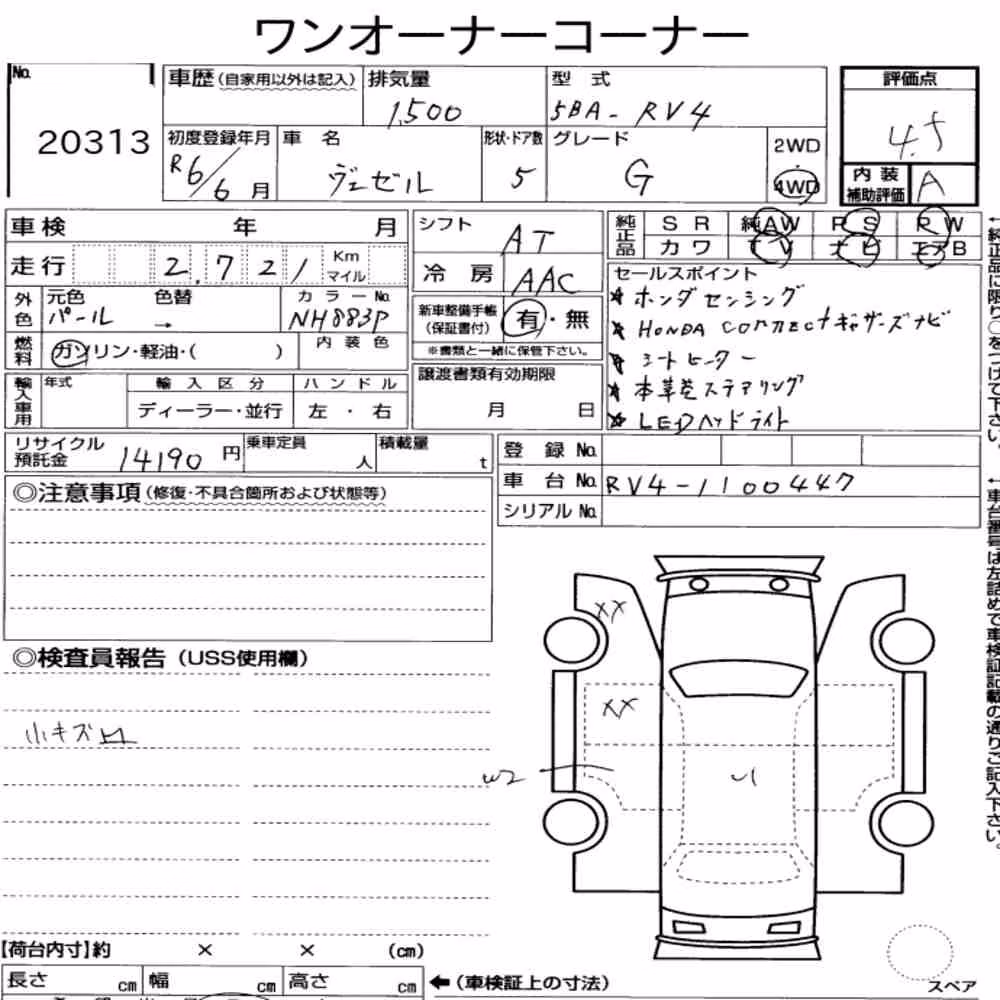 ワンオーナーコーナー
No.
20313
車歴(自家用以外は記入)
排気量
1,500
型 式
5BA-RV4
評価点
4.5
初度登録年月
R6/6月
車 名
ヴェゼル
形状・ドア数
5
グレード
G
2WD
・
4WD
内装補助評価
A
車検 年 月
走行 2,721 Km マイル
シフト
AT
冷 房
AAC
純正品
S R 純AW P S P W
カワ T V ナビ エアB
外色
元色
パール
色替
→
カラーNo.
NH883P
燃料
ガソリン・軽油・( )
内装色
新車整備手帳
(保証書付)
有・無
※書類と一緒に保管下さい。
譲渡書類有効期限
月 日
セールスポイント
★ホンダセンシング
★HONDA CONNECTギャザーズナビ
★シートヒーター
★本革巻ステアリング
★LEDヘッドライト
輸入車用
年式
輸入区分
ハンドル
ディーラー・並行
左・右
リサイクル
預託金
14190円
乗車定員
人
積載量
t
登 録 No.
車 台 No.
RV4-1100447
シリアル No.
◎注意事項(修復・不具合箇所および状態等)
◎検査員報告(USS使用欄)
小キズ凹
XX
XX
W2
U1
【荷台内寸】約 × × (cm)
長さ cm 幅 cm 高さ cm
←(車検証上の寸法)
スペア
←純正品に限り○をつけて下さい。
←車台番号は左詰めで車検証記載の通りご記入下さい。